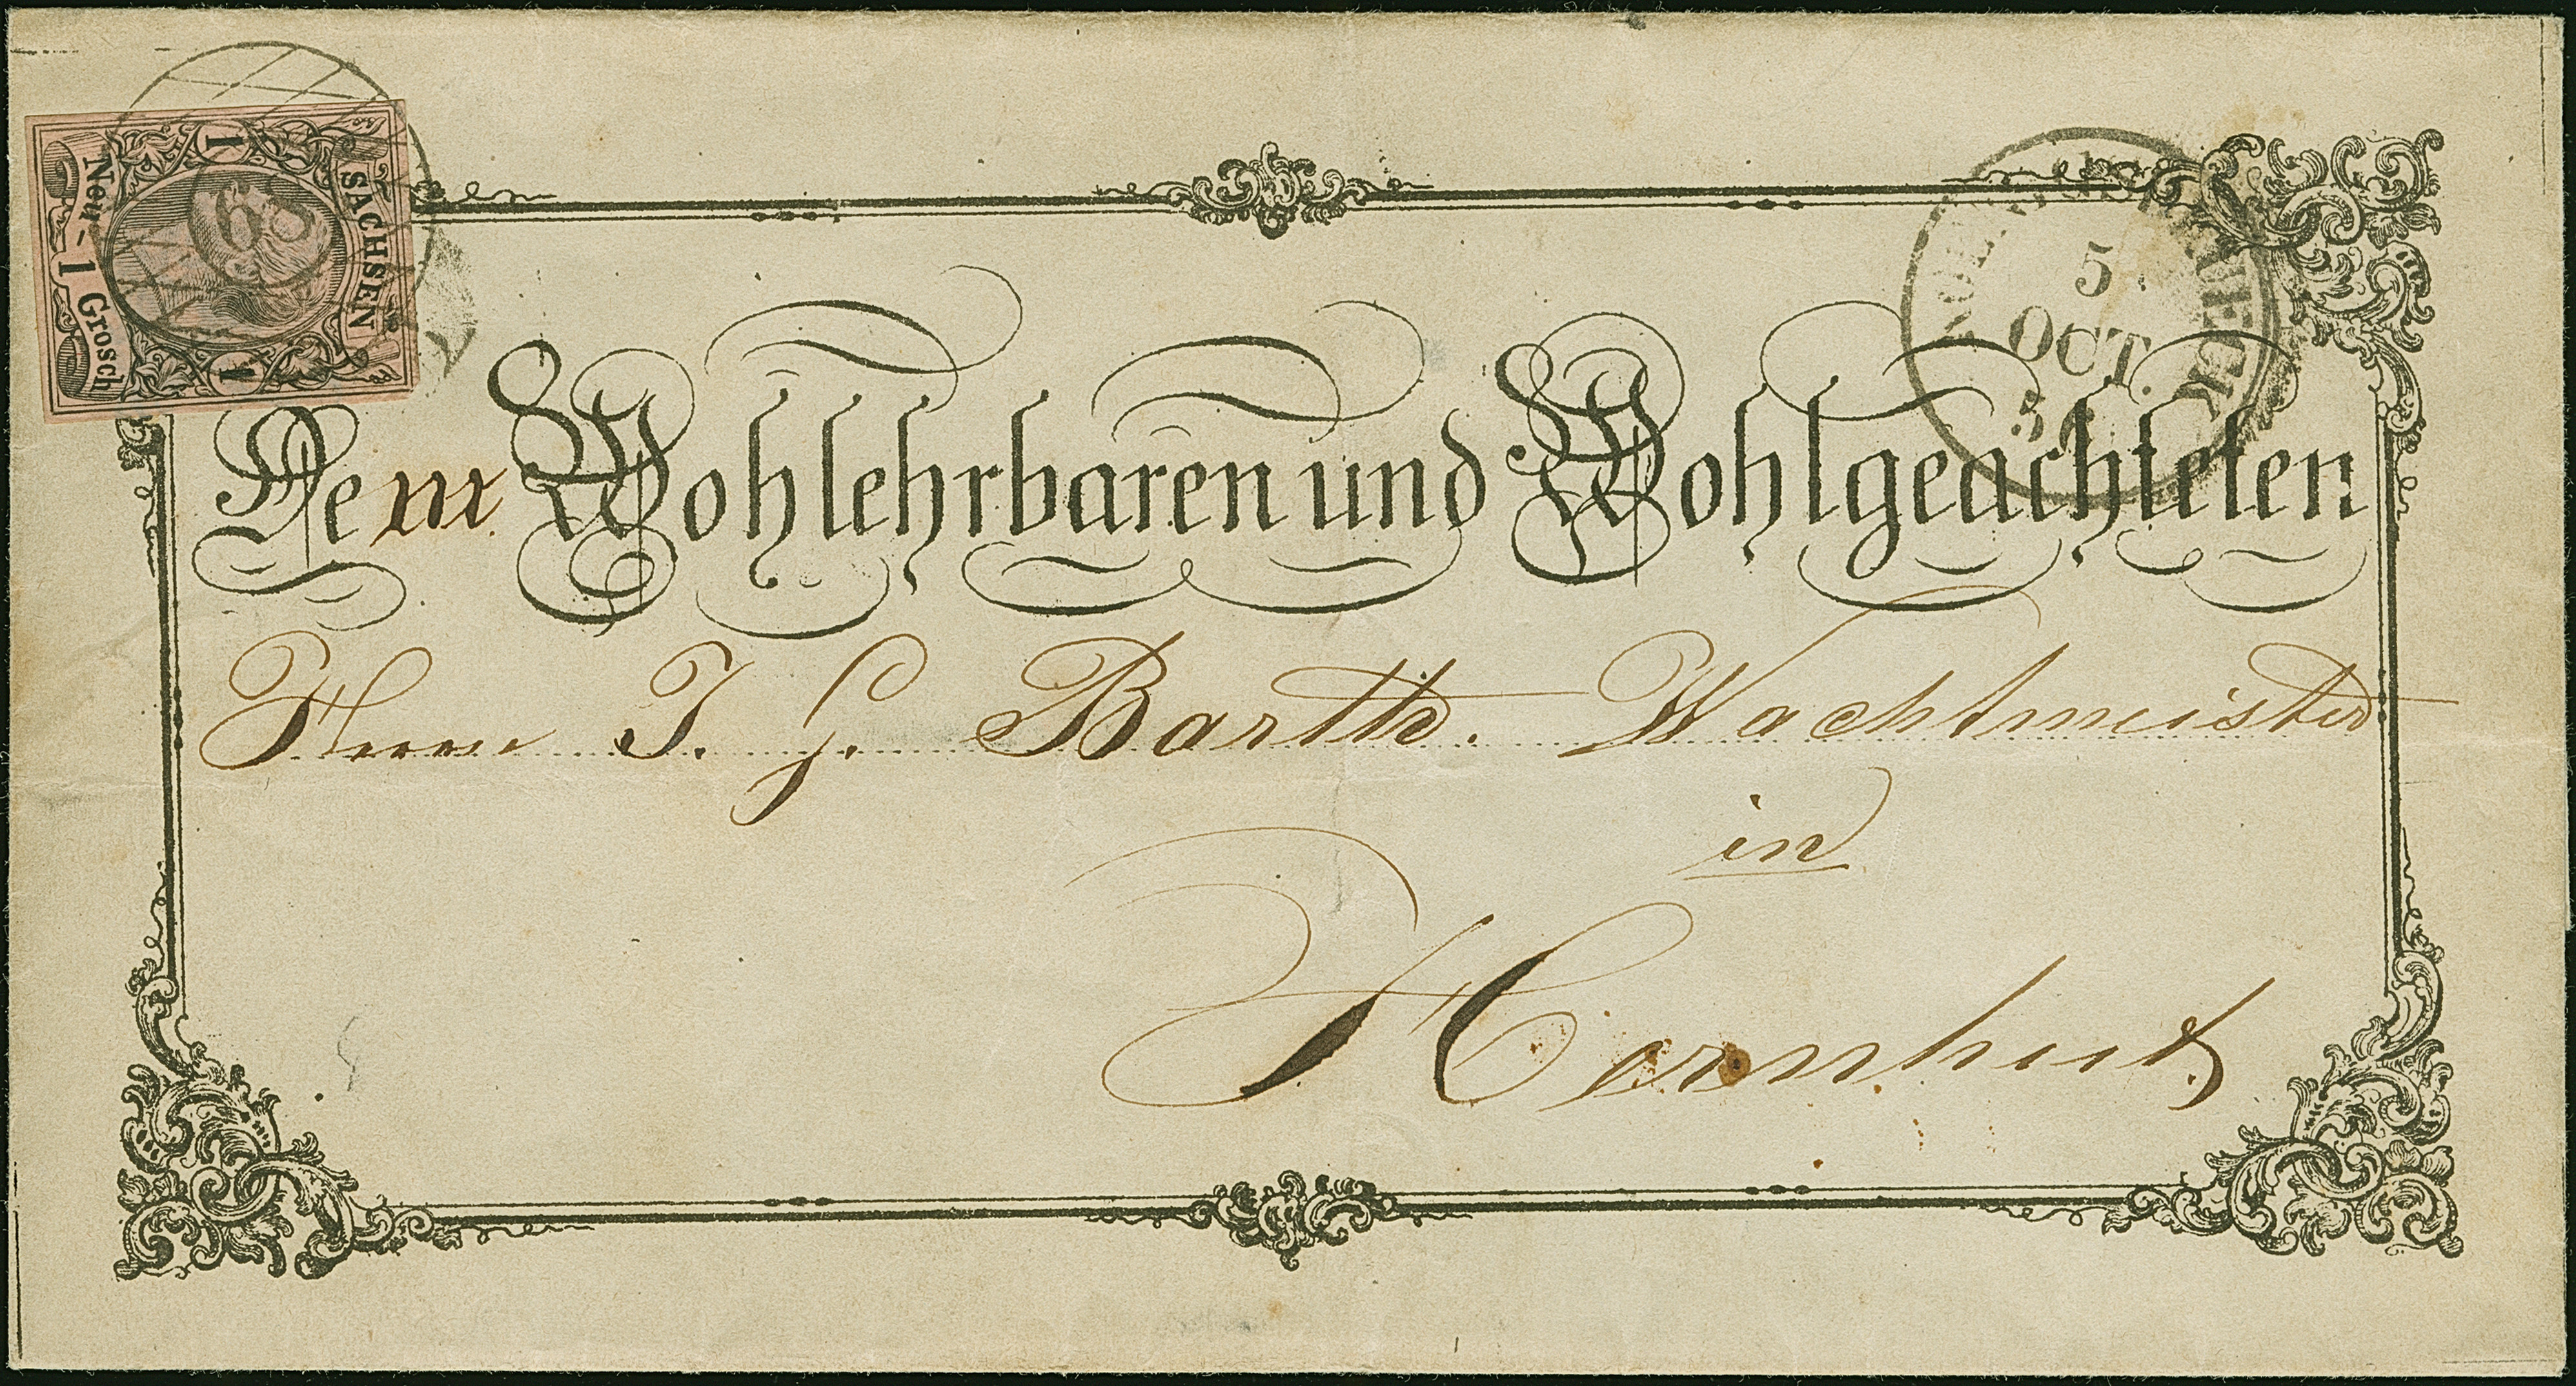 SACHSEN
1
1
Neu-1 Grosch
68
5
OCT.
Dem Wohlehrbaren und Wohlgeachteten
Herrn J. G. Barth. Wachtmeister
in
Hernhut